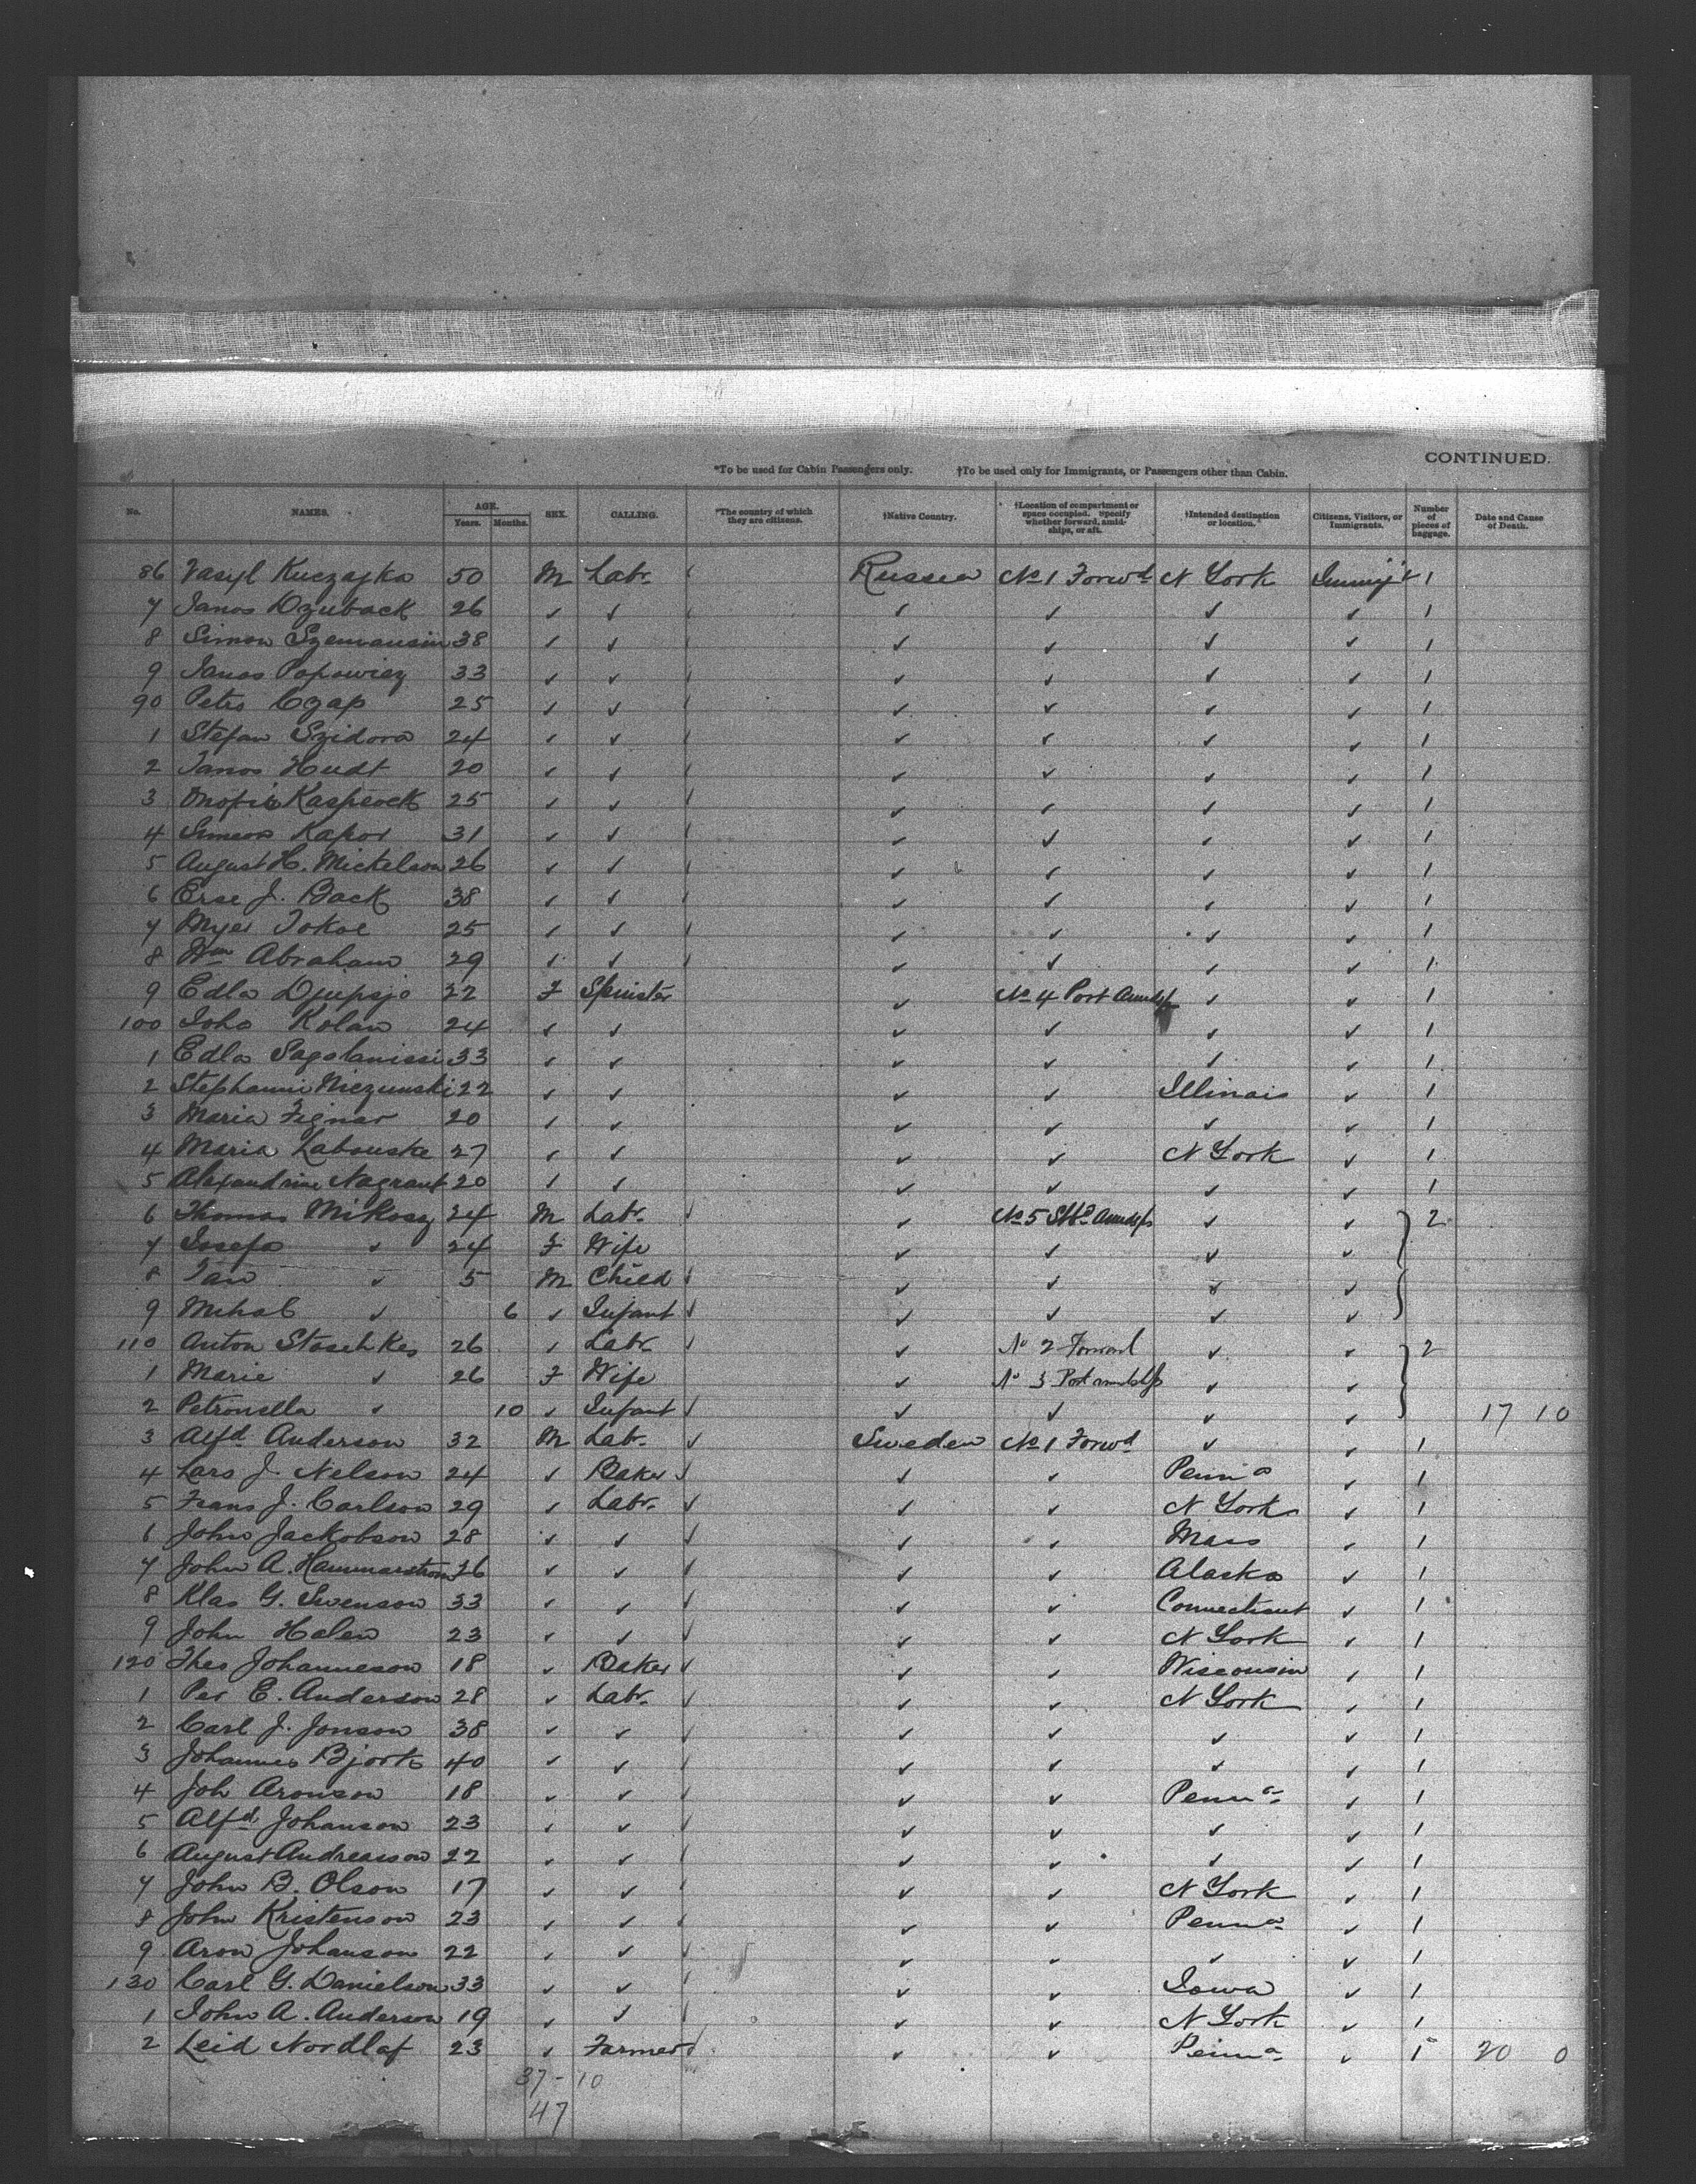 CONTINUED.
*To be used for Cabin Passengers only. †To be used only for Immigrants, or Passengers other than Cabin.
No. NAMES. AGE. Years. Months. SEX. CALLING. *The country of which they are citizens. †Native Country. †Location of compartment or space occupied. Specify whether forward, amidships, or aft. †Intended destination or location. Citizens, Visitors, or Immigrants. Number of pieces of baggage. Date and Cause of Death.
86 Vasyl Kuczajka 50 M Labr. Russia No 1 Forwd N York Immigt 1
7 Janos Dzuback 26 ✓ ✓ ✓ ✓ ✓ ✓ 1
8 Simon 38 ✓ ✓ ✓ ✓ ✓ ✓ 1
9 Janos Popowicz 33 ✓ ✓ ✓ ✓ ✓ ✓ 1
90 Petro Czap 25 ✓ ✓ ✓ ✓ ✓ ✓ 1
1 Stefan Szidora 24 ✓ ✓ ✓ ✓ ✓ ✓ 1
2 Janos Hudt 20 ✓ ✓ ✓ ✓ ✓ ✓ 1
3 25 ✓ ✓ ✓ ✓ ✓ ✓ 1
4 Simeon Kapor 31 ✓ ✓ ✓ ✓ ✓ ✓ 1
5 August H. Mickelson 26 ✓ ✓ ✓ ✓ ✓ ✓ 1
6 Erse J. Back 38 ✓ ✓ ✓ ✓ ✓ ✓ 1
7 Myer Tokoe 25 ✓ ✓ ✓ ✓ ✓ ✓ 1
8 Wm Abraham 29 ✓ ✓ ✓ ✓ ✓ ✓ 1
9 Edla Djupsjo 22 F Spinster ✓ No 4 Port Amidsp ✓ ✓ 1
100 Kolan 24 ✓ ✓ ✓ ✓ ✓ ✓ 1
1 Edla 33 ✓ ✓ ✓ ✓ ✓ ✓ 1
2 Stephanie Niezunski 22 ✓ ✓ ✓ ✓ Illinois ✓ 1
3 Maria Fignar 20 ✓ ✓ ✓ ✓ ✓ ✓ 1
4 Maria Labouske 27 ✓ ✓ ✓ ✓ N York ✓ 1
5 Alexandrine Nagrant 20 ✓ ✓ ✓ ✓ ✓ ✓ 1
6 Thomas Mikosz 24 M Labr. ✓ No 5 Stbd Amidsp ✓ ✓ 2
7 Josefa ✓ 24 F Wife ✓ ✓ ✓ ✓
8 Jan ✓ 5 M Child ✓ ✓ ✓ ✓
9 Mihal ✓ 6 ✓ Infant ✓ ✓ ✓ ✓
110 Anton Staschkes 26 ✓ Labr. ✓ No 2 Forward ✓ ✓ 2
1 Marie ✓ 26 F Wife ✓ No 3 Port amidsp ✓ ✓
2 Petronella ✓ 10 ✓ Infant ✓ ✓ ✓ ✓ 17 10
3 Alfd Anderson 32 M Labr. Sweden No 1 Forwd ✓ ✓ 1
4 Lars J. Nelson 24 ✓ Baker ✓ ✓ Penna ✓ 1
5 Frans J. Carlson 29 ✓ Labr. ✓ ✓ N York ✓ 1
6 John Jackobson 28 ✓ ✓ ✓ ✓ Mass ✓ 1
7 John A. Hammarstrom 26 ✓ ✓ ✓ ✓ Alaska ✓ 1
8 Klas G. Swenson 33 ✓ ✓ ✓ ✓ Connecticut ✓ 1
9 John Halen 23 ✓ ✓ ✓ ✓ N York ✓ 1
120 Theo Johanneson 18 ✓ Baker ✓ ✓ Wisconsin ✓ 1
1 Per E. Anderson 28 ✓ Labr. ✓ ✓ N York ✓ 1
2 Carl J. Jonson 38 ✓ ✓ ✓ ✓ ✓ ✓ 1
3 Johannes Bjork 40 ✓ ✓ ✓ ✓ ✓ ✓ 1
4 Joh Aronson 18 ✓ ✓ ✓ ✓ Penna ✓ 1
5 Alfd Johanson 23 ✓ ✓ ✓ ✓ ✓ ✓ 1
6 August Andreasson 22 ✓ ✓ ✓ ✓ ✓ ✓ 1
7 John B. Olson 17 ✓ ✓ ✓ ✓ N York ✓ 1
8 John Kristenson 23 ✓ ✓ ✓ ✓ Penna ✓ 1
9 Aron Johanson 22 ✓ ✓ ✓ ✓ ✓ ✓ 1
130 Carl G. Danielson 33 ✓ ✓ ✓ ✓ Iowa ✓ 1
1 John A. Anderson 19 ✓ ✓ ✓ ✓ N York ✓ 1
2 Leid Nordlaf 23 ✓ Farmer ✓ ✓ Penna ✓ 1 20 0
37-10
47